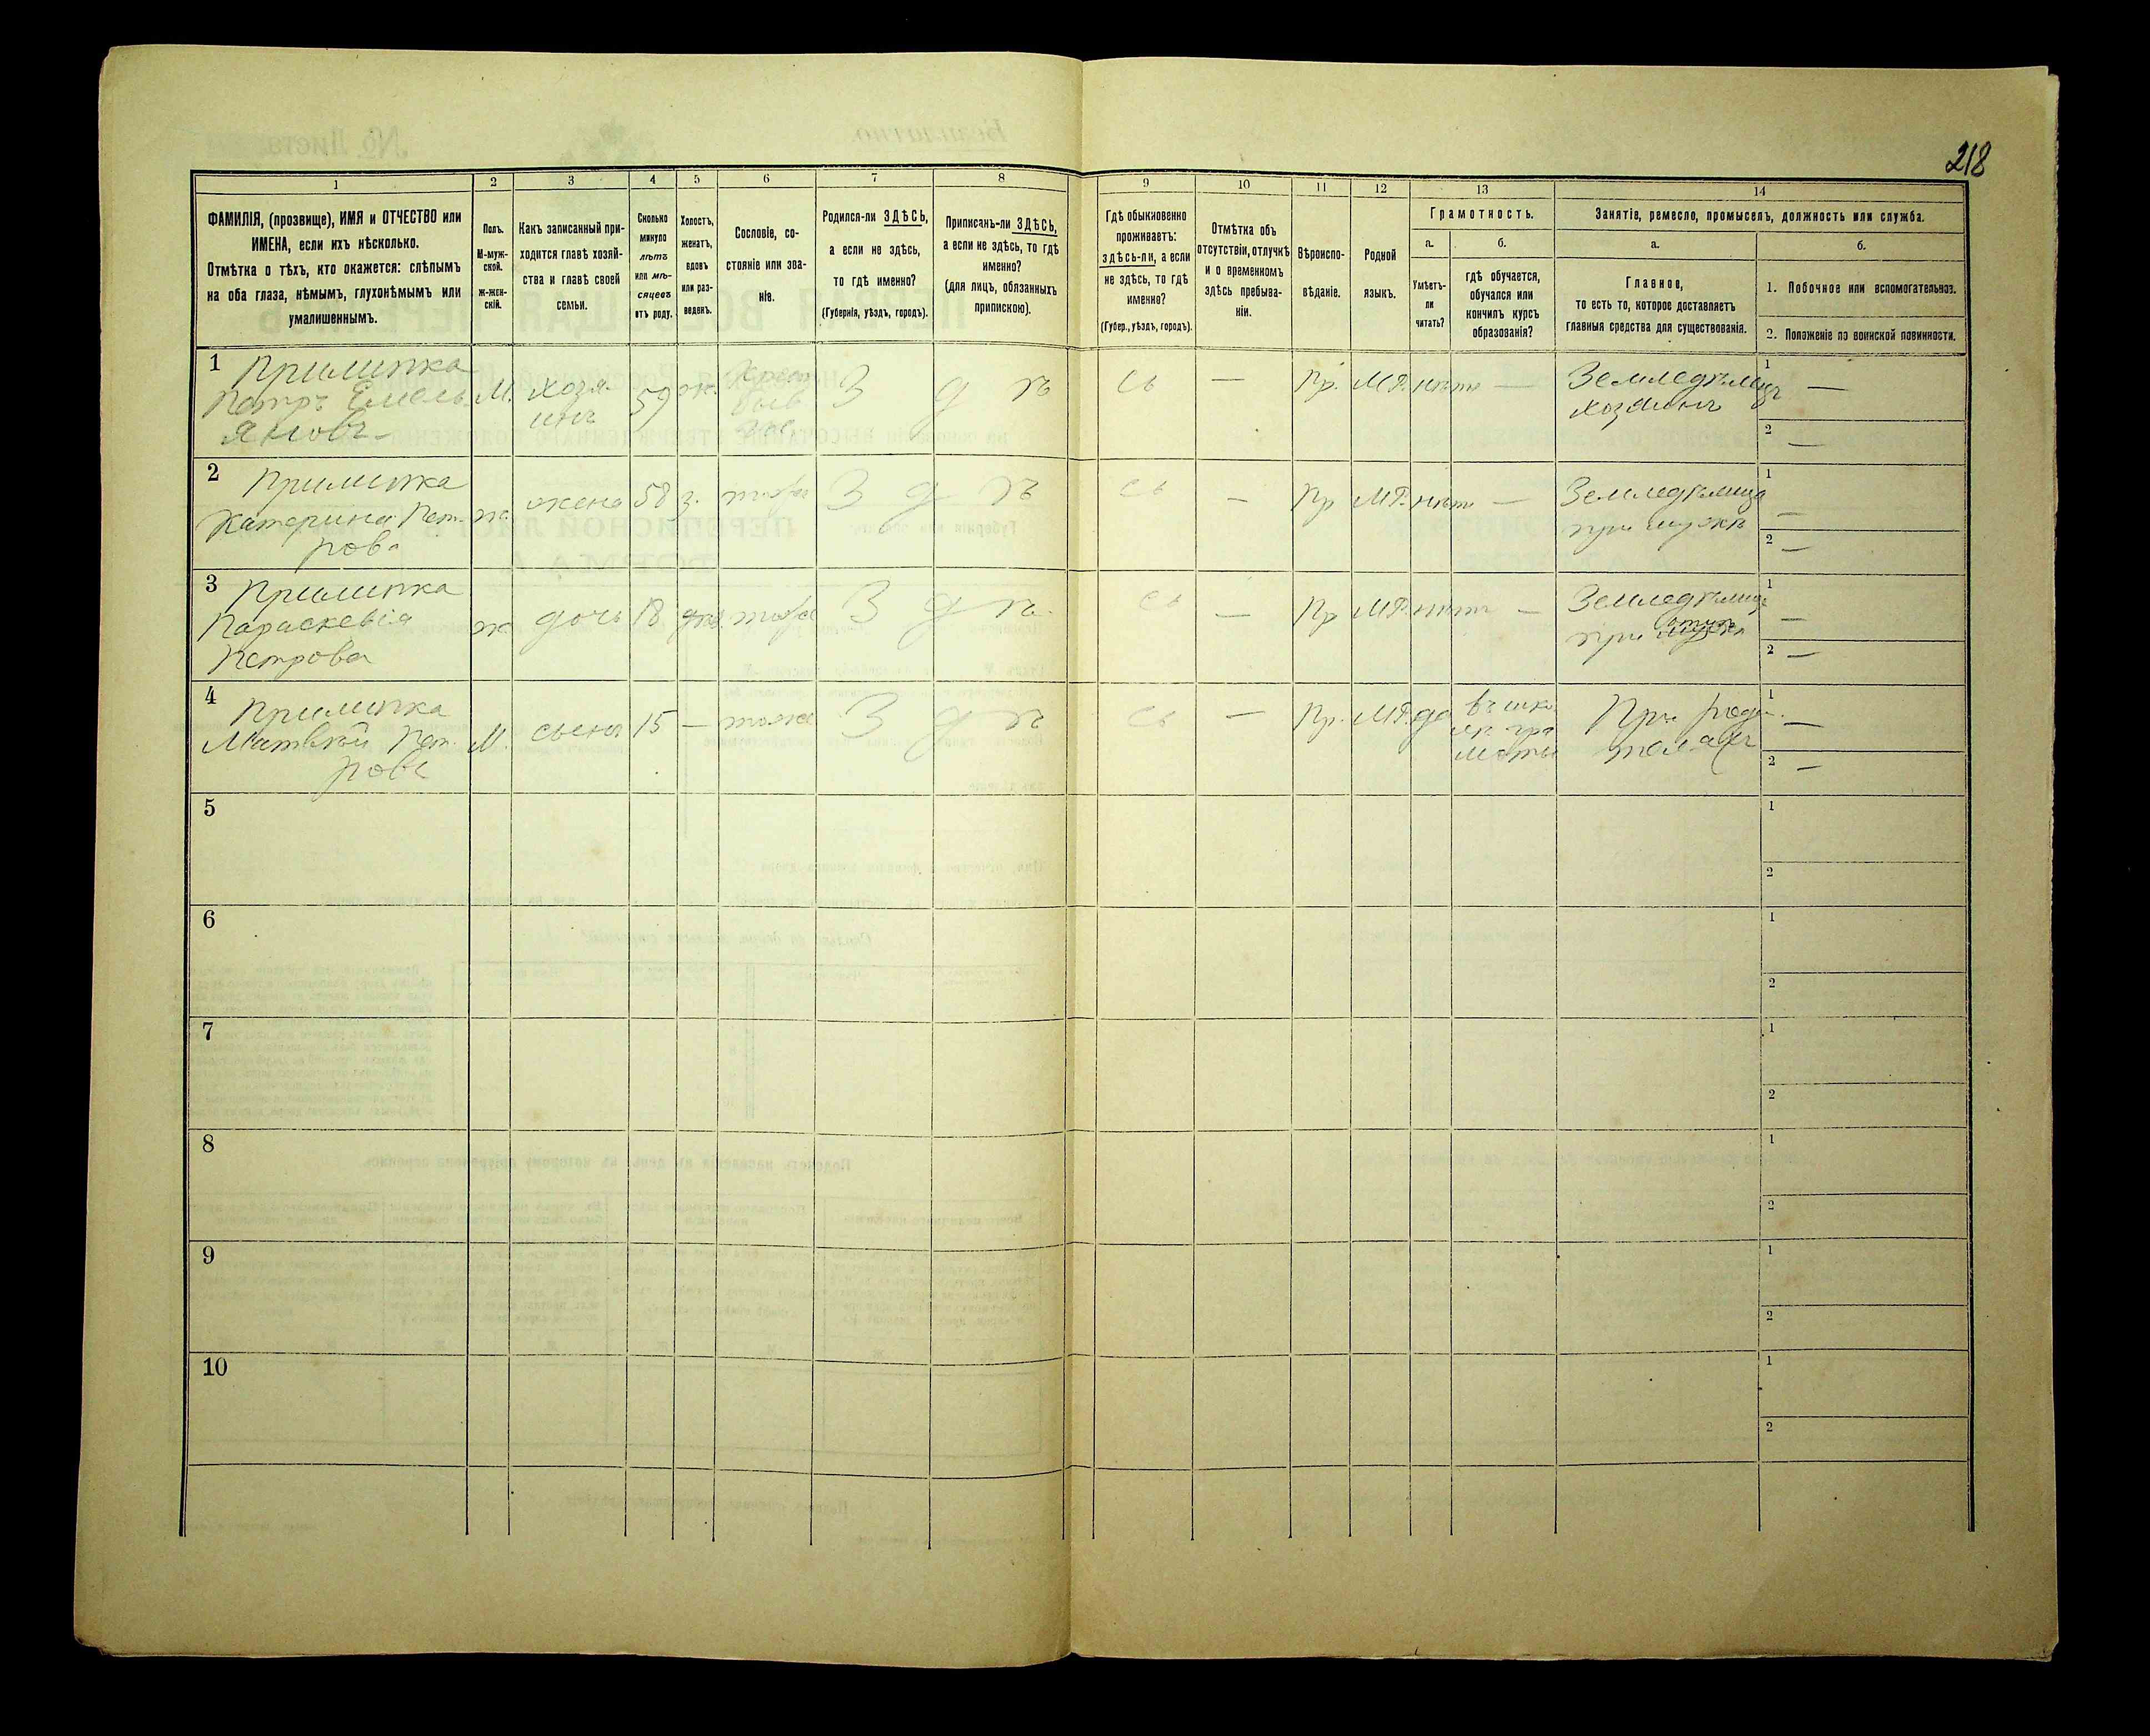 218
1
2
3
4
5
6
7
8
9
10
11
12
13
14
ФАМИЛІЯ, (прозвище), ИМЯ и ОТЧЕСТВО или
ИМЕНА, если ихъ нѣсколько.
Отмѣтка о тѣхъ, кто окажется: слѣпымъ
на оба глаза, нѣмымъ, глухонѣмымъ или
умалишеннымъ.
Полъ.
М-муж-
ской.
ж-жен-
скій.
Какъ записанный при-
ходится главѣ хозяй-
ства и главѣ своей
семьи.
Сколько
минуло
лѣтъ
или мѣ-
сяцевъ
отъ роду.
Холостъ,
женатъ,
вдовъ
или раз-
веденъ.
Сословіе, со-
стояніе или зва-
ніе.
Родился-ли ЗДѢСЬ,
а если не здѣсь,
то гдѣ именно?
(Губернія, уѣздъ, городъ).
Приписанъ-ли ЗДѢСЬ,
а если не здѣсь, то гдѣ
именно?
(для лицъ, обязанныхъ
припискою).
Гдѣ обыкновенно
проживаетъ:
здѣсь-ли, а если
не здѣсь, то гдѣ
именно?
(Губер., уѣздъ, городъ).
Отмѣтка объ
отсутствіи, отлучкѣ
и о временномъ
здѣсь пребыва-
ніи.
Вѣроиспо-
вѣданіе.
Родной
языкъ.
Грамотность.
а.
б.
Умѣетъ-
ли
читать?
гдѣ обучается,
обучался или
кончилъ курсъ
образованія?
Занятіе, ремесло, промыселъ, должность или служба.
а.
б.
Главное,
то есть то, которое доставляетъ
главныя средства для существованія.
1. Побочное или вспомогательное.
2. Положеніе по воинской повинности.
1
Прилипка
Петръ Емель
яновъ
М.
хозя
инъ
59
ж.
З д ѣ сь
—
Пр.
М.Р.
нѣтъ
—
Земледѣлецъ
хозяинъ
1
—
2
—
2
Прилипка
Катерина Пет
рова
ж.
жена
58
З д ѣ сь
—
Пр
М.Р.
нѣтъ
—
Земледѣлица
при мужѣ
1
—
2
—
3
Прилипка
Параскевія
Петрова
ж
дочь
18
З д ѣ сь
—
Пр
М.Р.
нѣтъ
—
Земледѣлица
при
1
—
2
—
4
Прилипка
Матвѣй Пет
ровъ
М.
сынъ
15
—
З д ѣ сь
—
Пр.
М.Р.
да
въ шко
лѣ гра
моты
При роди
теляхъ
1
—
2
—
5
1
2
6
1
2
7
1
2
8
1
2
9
1
2
10
1
2